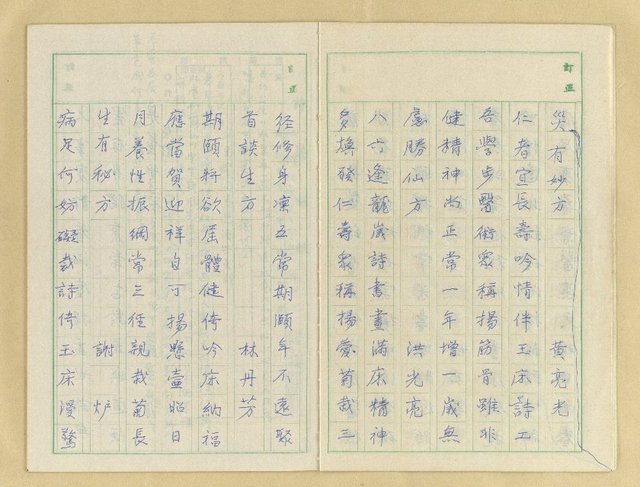 訂正
災有妙方 黃亮光
仁者宜長壽吟情伴玉床詩工
吾學步醫術眾稱揚筋骨雖非
健精神尚正常一年增一歲無
慮勝仙方 洪光亮
八六逢龍歲詩書畫滿床精神
多煥發仁壽眾稱揚愛菊栽三
徑修身凜五常期頤年不遠聚
首談生方 林丹芳
期頤料欲屆體健倚吟床納福
應當賀迎祥自可揚懸壺昭日
月養性振綱常三徑親栽菊長
生有秘方 謝炉
病足何妨礙裁詩倚玉床漫驚